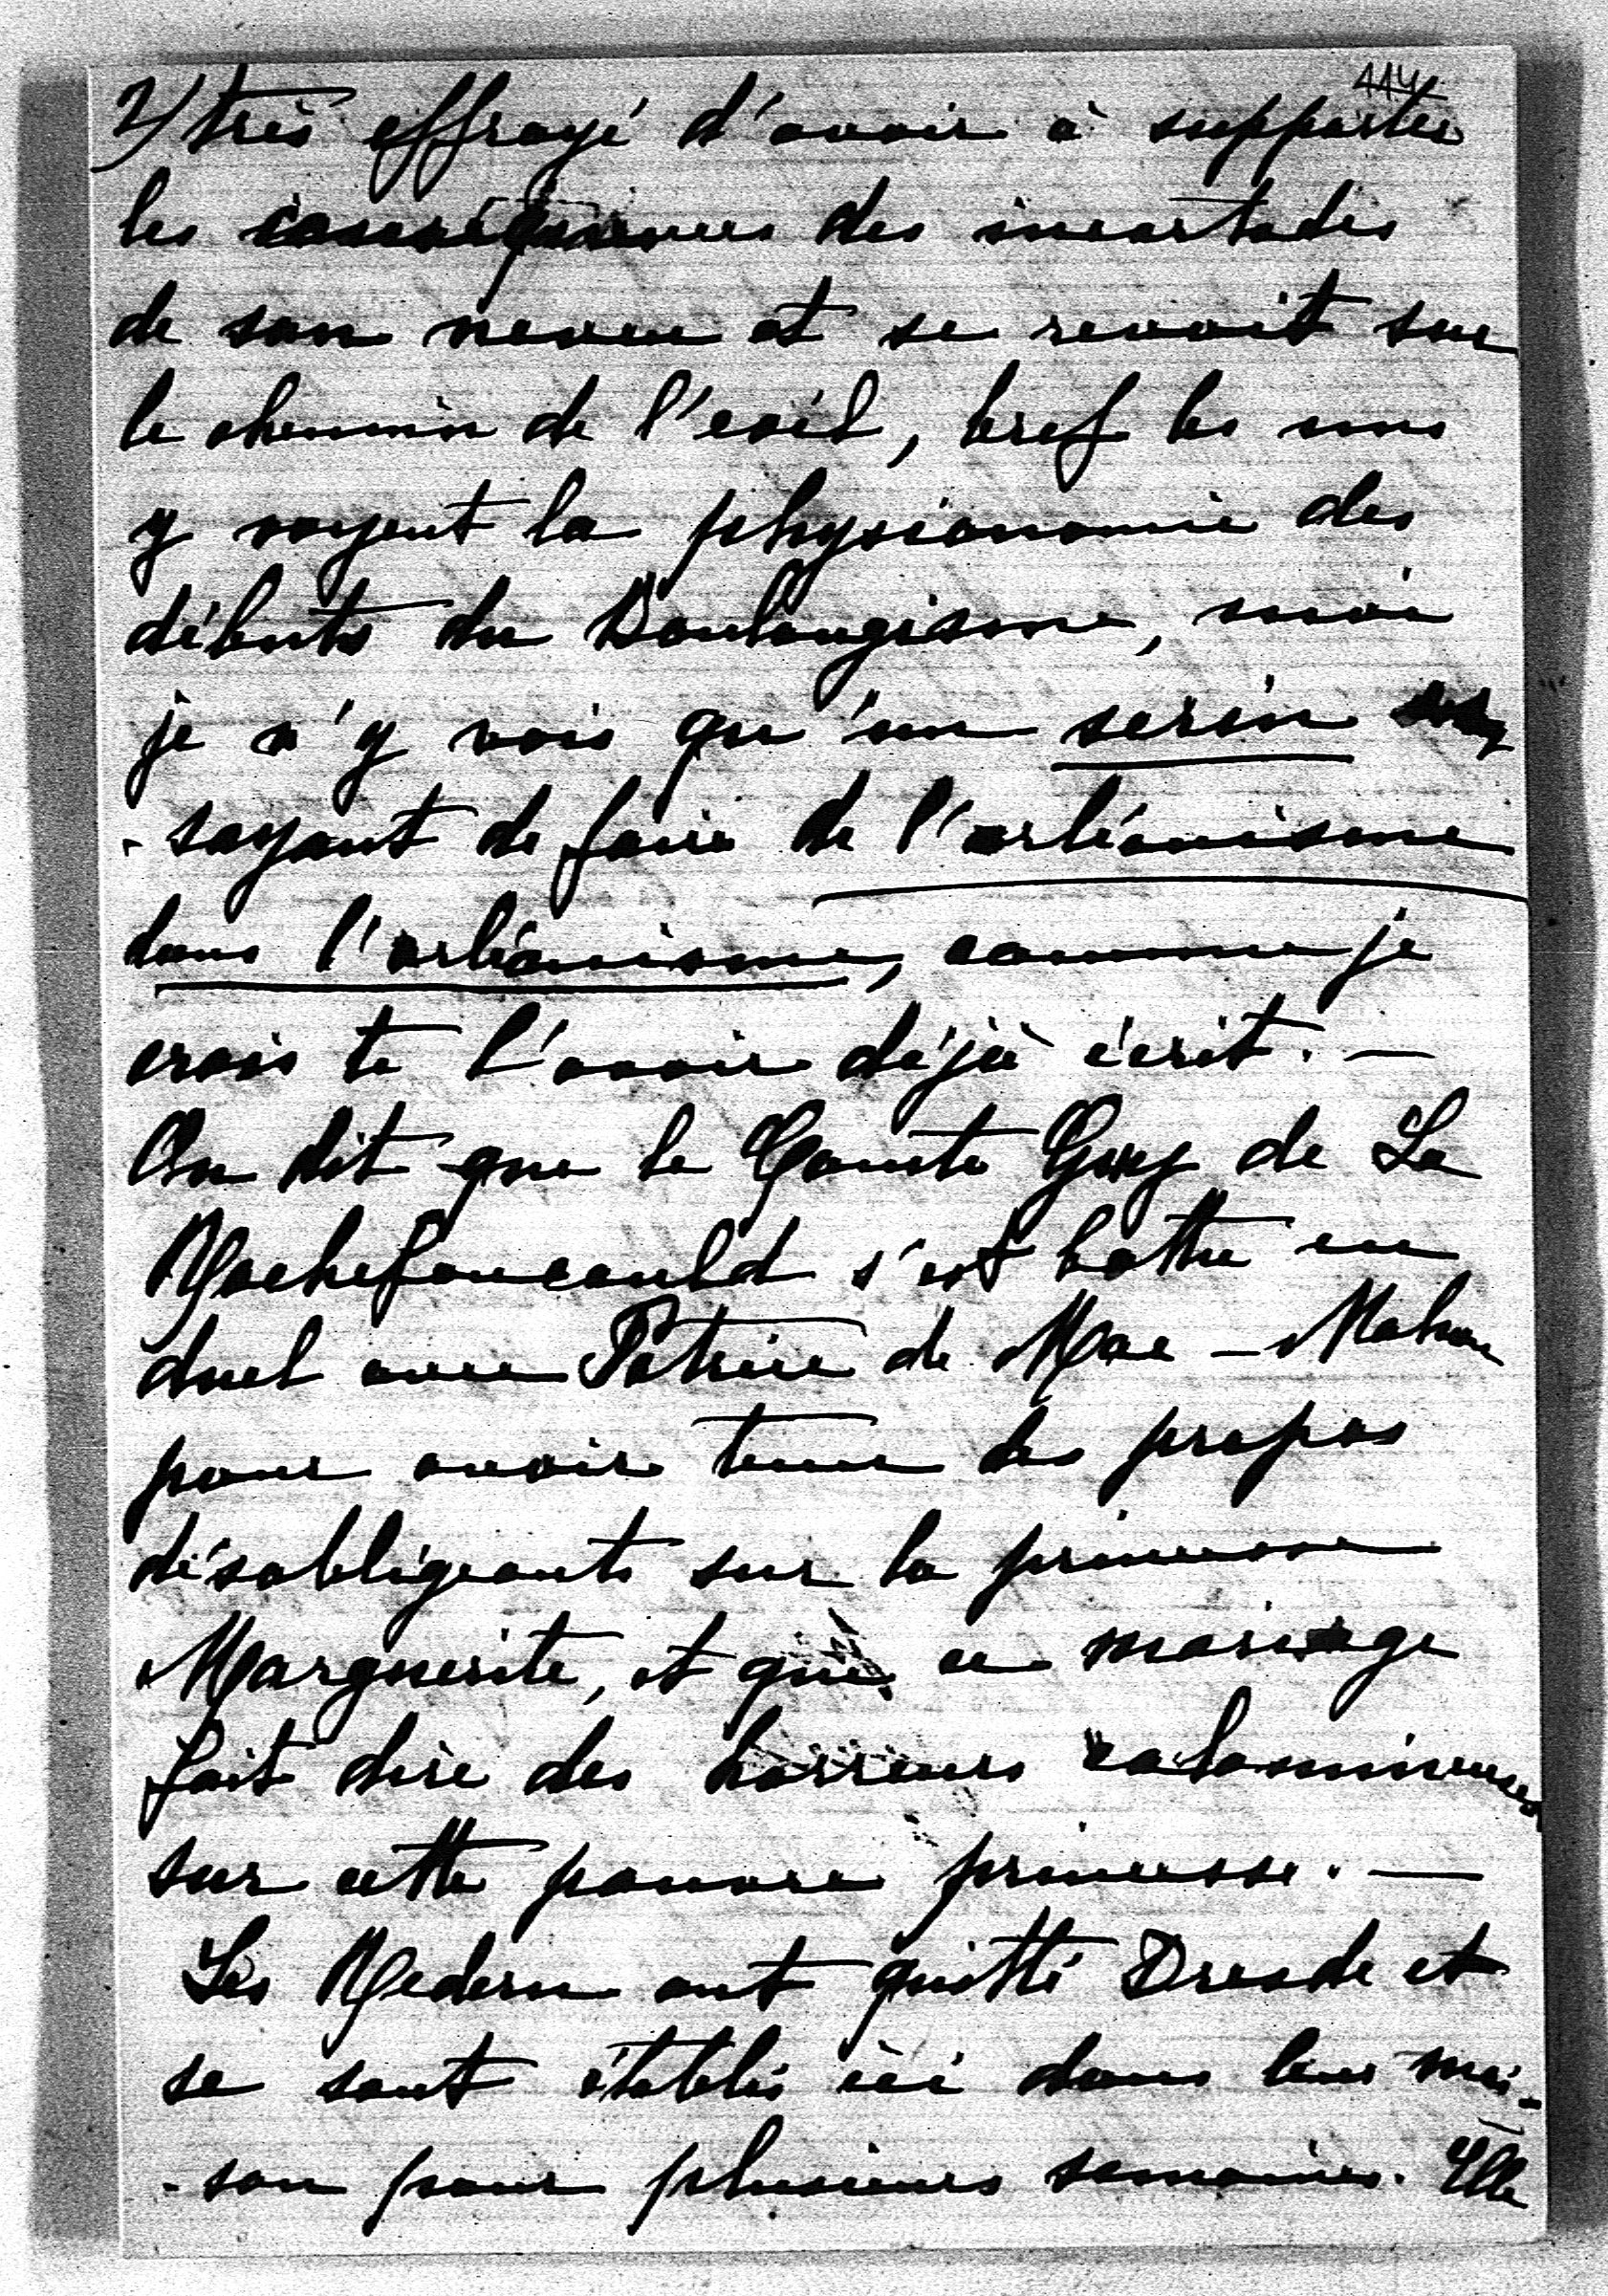 114
2/ très effrayé d'avoir à supporter
les conséquences des incartades
de son neveu et se revoit sur
le chemin de l'exil, bref les uns
y voyent la physionomie des
débuts du Boulangisme, moi
je n'y vois qu'un serin es
-sayant de faire de l'orléanisme
dans l'orléanisme, comme je
crois te l'avoir déjà écrit. —
On dit que le Comte Guy de La
Rochefoucauld s'est battu en
duel avec Patrice de Mac-Mahon
pour avoir tenu des propos
désobligeants sur la princesse
Marguerite, et que ce mariage
fait dire des horreurs calomnieuses
sur cette pauvre princesse. —
Les Medem ont quitté Dresde et
se sont établis ici dans leur mai-
-son pour plusieurs semaines. Elle